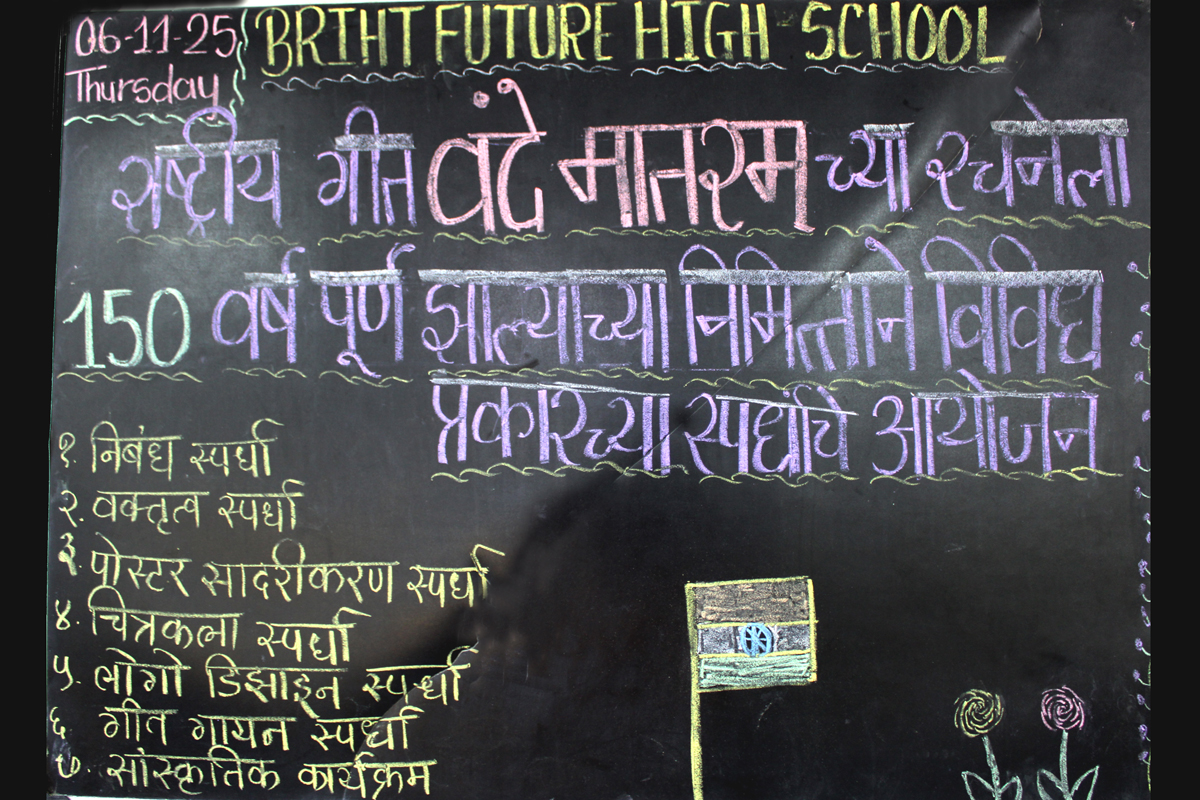 06-11-25
Thursday
BRIHT FUTURE HIGH-SCHOOL
राष्ट्रीय गीत वंदे मातरम च्या रचनेला
150 वर्ष पूर्ण झाल्याच्या निमित्ताने विविध
प्रकारच्या स्पर्धांचे आयोजन
१. निबंध स्पर्धा
२. वक्तृत्व स्पर्धा
३. पोस्टर सादरीकरण स्पर्धा
४. चित्रकला स्पर्धा
५. लोगो डिझाइन स्पर्धा
६. गीत गायन स्पर्धा
७. सांस्कृतिक कार्यक्रम